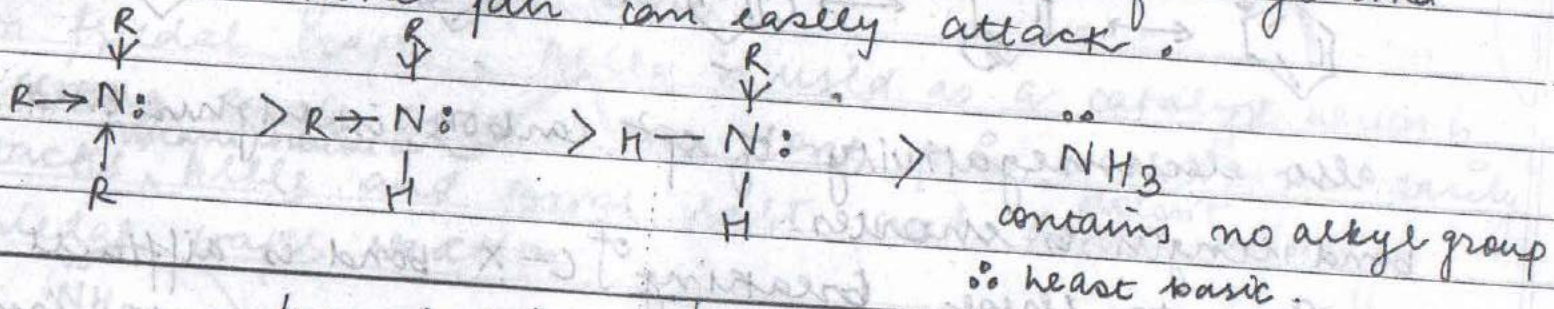 pair can easily attack.
R R R
R→N: > R→N: > H—N: > NH3
R H H
contains no alkyl group
∴ least basic.